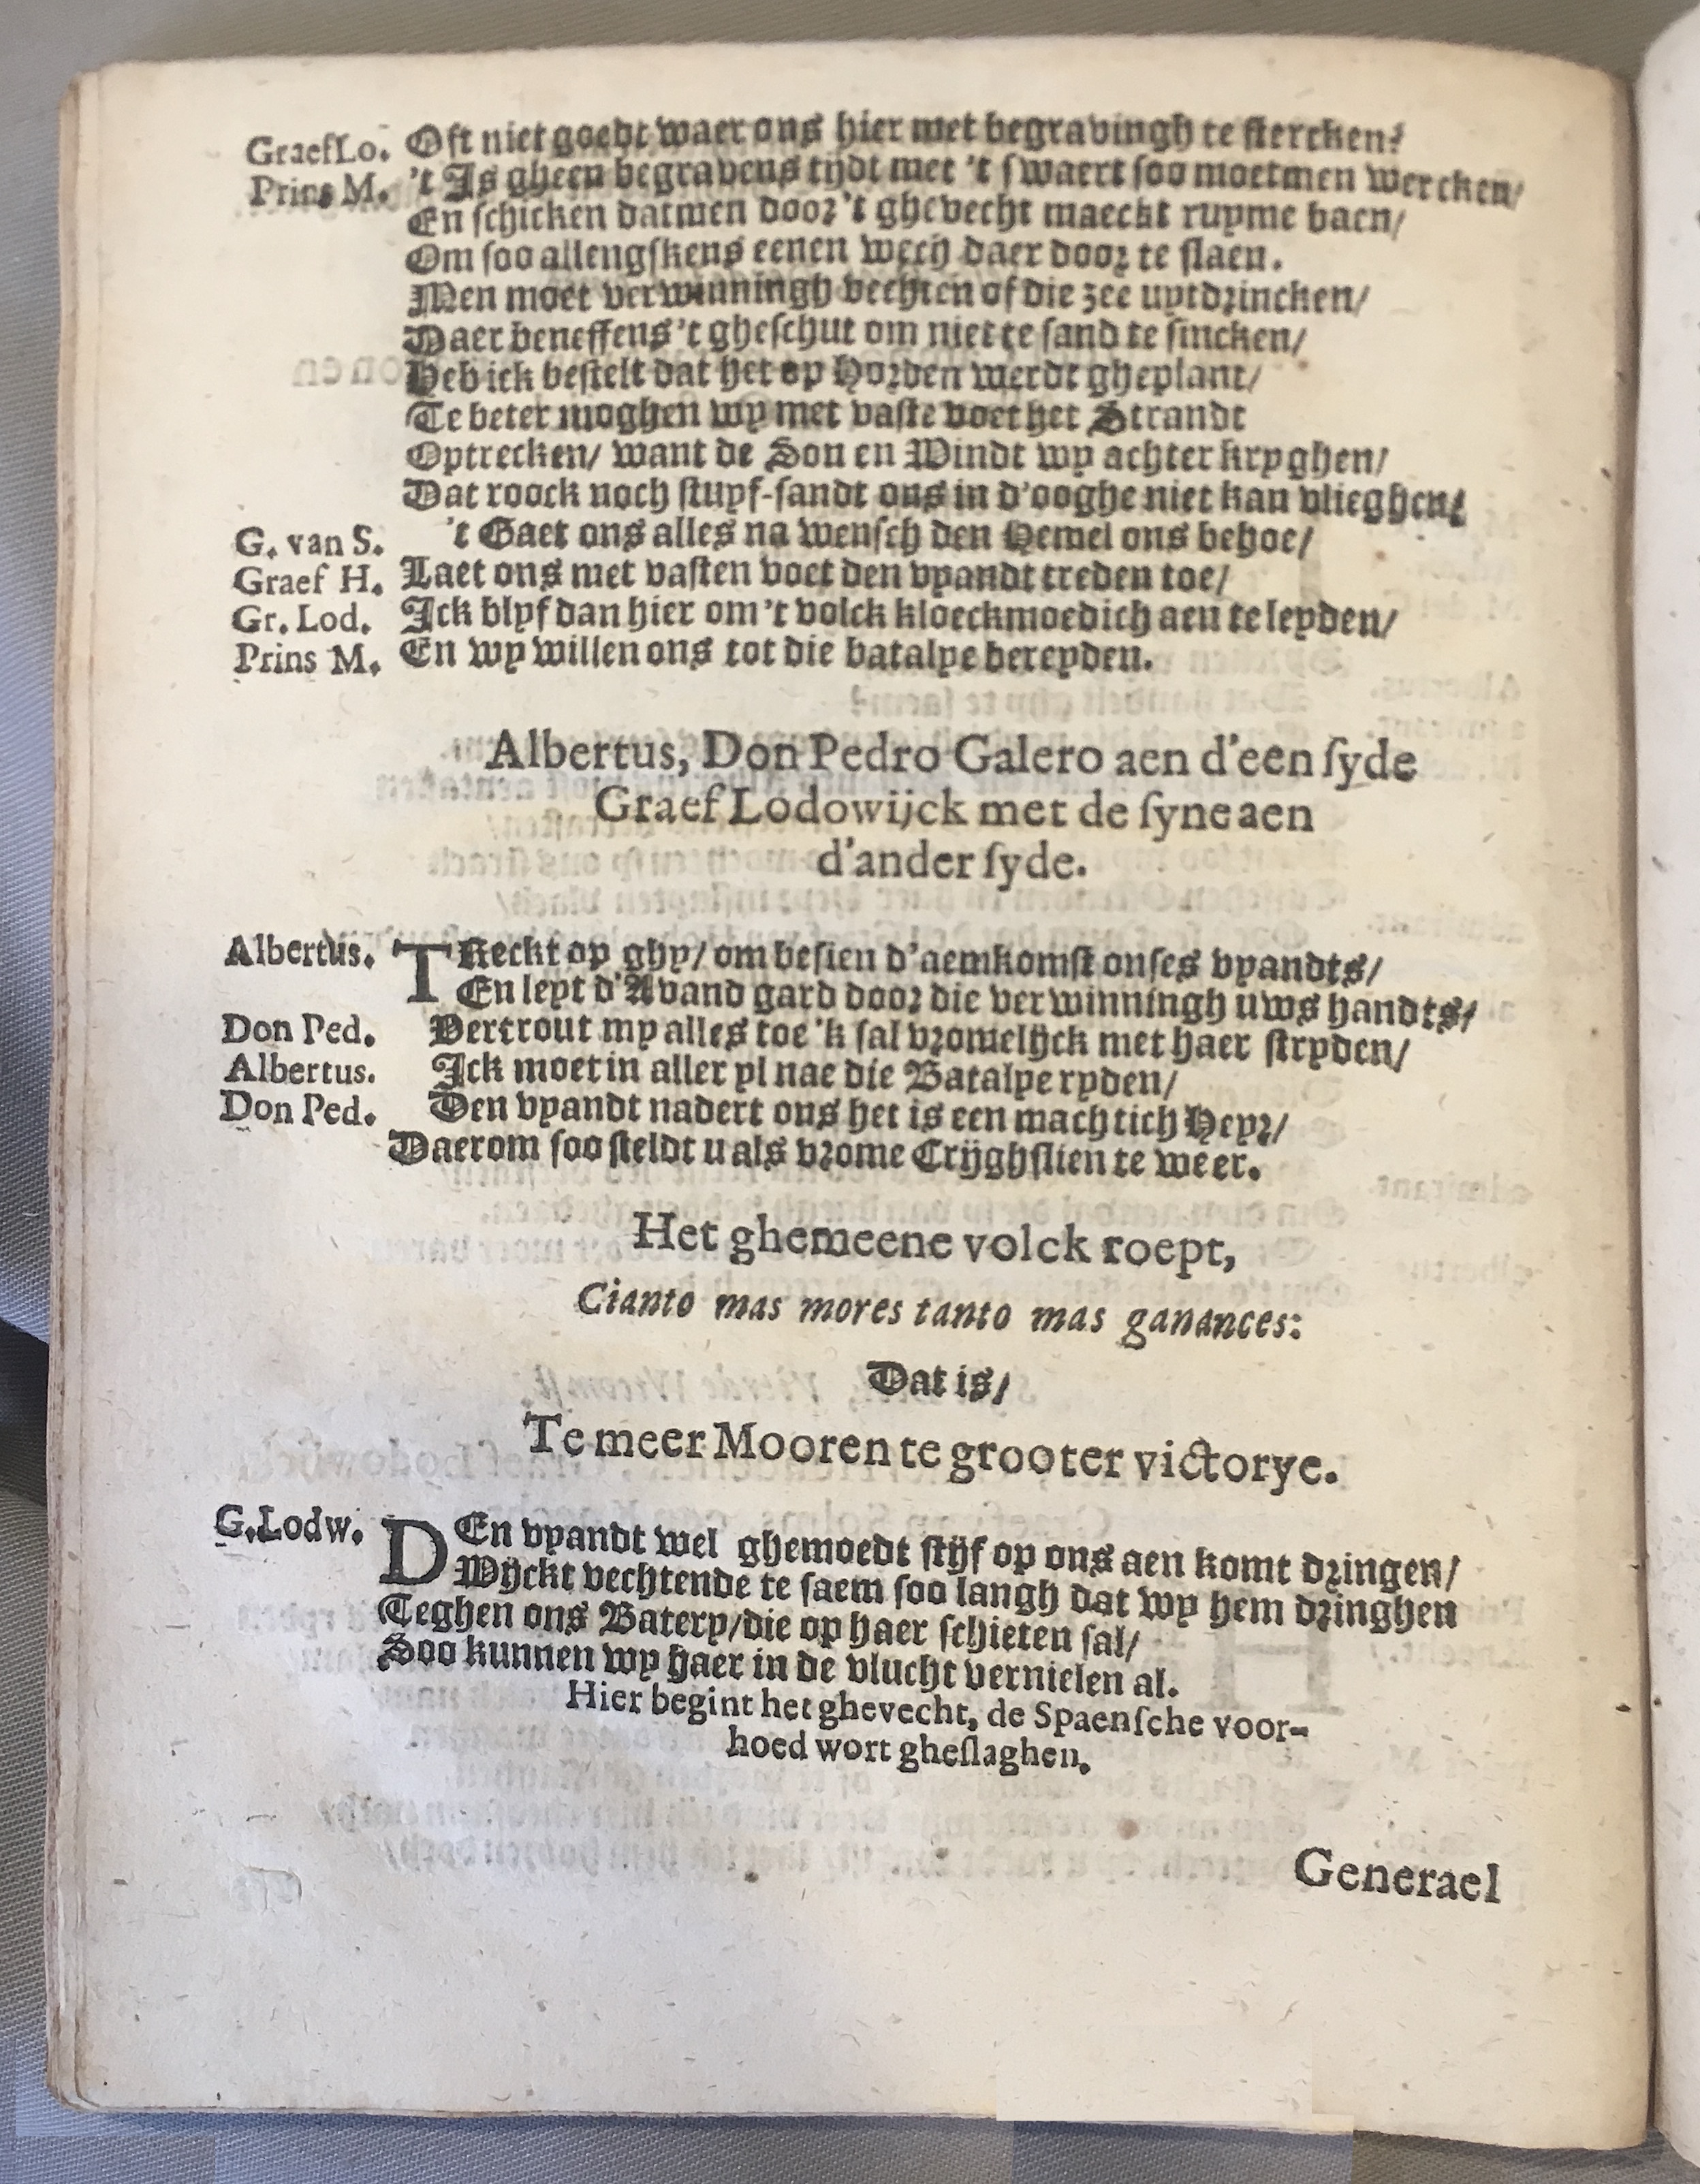 GraefLo. Oft niet goedt waer ons hier met begravingh te stercken?
Prins M. 't Is gheen begravens tijdt met 't swaert soo moetmen wercken/
En schicken datmen door 't ghevecht maeckt ruyme baen/
Om soo allengskens eenen wech daer door te slaen.
Men moet verwinningh vechten of die zee uytdrincken/
Daer beneffens 't gheschut om niet te sand te sincken/
Heb ick bestelt dat het op Horden werdt gheplant/
Te beter moghen wy met vaste voet het Strandt
Optrecken/ want de Son en Windt wy achter kryghen/
Dat roock noch stuyf-sandt ons in d'ooghe niet kan vlieghen/
G. van S. 't Gaet ons alles na wensch den Hemel ons behoe/
Graef H. Laet ons met vasten voet den vyandt treden toe/
Gr. Lod. Ick blyf dan hier om 't volck kloeckmoedich aen te leyden/
Prins M. En wy willen ons tot die batalye bereyden.
Albertus, Don Pedro Galero aen d'een syde
Graef Lodowijck met de syne aen
d'ander syde.
Albertus. TReckt op ghy/ om besien d'aemkomst onses vyandts/
En leyt d'Avand gard door die verwinningh uws handts/
Don Ped. Vertrout my alles toe 'k sal vromelijck met haer stryden/
Albertus. Ick moet in aller yl nae die Batalye ryden/
Don Ped. Den vyandt nadert ons het is een machtich Heyr/
Daerom soo steldt u als vrome Crijghslien te weer.
Het ghemeene volck roept,
Cianto mas mores tanto mas ganances:
Dat is/
Te meer Mooren te grooter victorye.
G. Lodw. DEn vyandt wel ghemoedt stijf op ons aen komt dringen/
Wijckt vechtende te saem soo langh dat wy hem dringhen
Teghen ons Batery/die op haer schieten sal/
Soo kunnen wy haer in de vlucht vernielen al.
Hier begint het ghevecht, de Spaensche voor-
hoed wort gheslaghen.
Generael